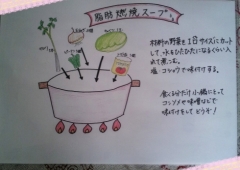 脂肪燃焼スープ
材料の野菜を1口サイズにカット
して、水をひたひたになるくらい入
れて煮こむ。
塩、コショウで味付けする。
食べる分だけ小鍋にとって
コンソメや味噌などで
味付けをしてどうぞ!